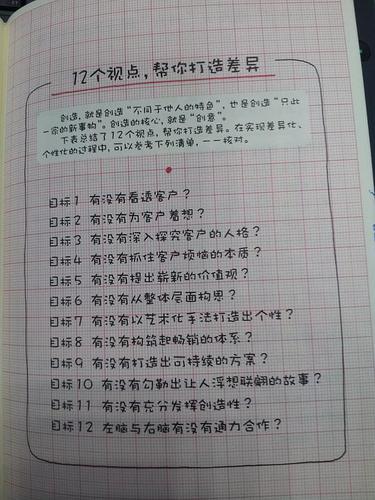 12个视点,帮你打造差异
创造,就是创造“不同于他人的特色”,也是创造“只此
一家的新事物”。创造的核心,就是“创意”。
下表总结了12个视点,帮你打造差异。在实现差异化、
个性化的过程中,可以参考下列清单,一一核对。
目标1 有没有看透客户?
目标2 有没有为客户着想?
目标3 有没有深入探究客户的人格?
目标4 有没有抓住客户烦恼的本质?
目标5 有没有提出崭新的价值观?
目标6 有没有从整体层面构思?
目标7 有没有以艺术化手法打造出个性?
目标8 有没有构筑起畅销的体系?
目标9 有没有打造出可持续的方案?
目标10 有没有勾勒出让人浮想联翩的故事?
目标11 有没有充分发挥创造性?
目标12 左脑与右脑有没有通力合作?